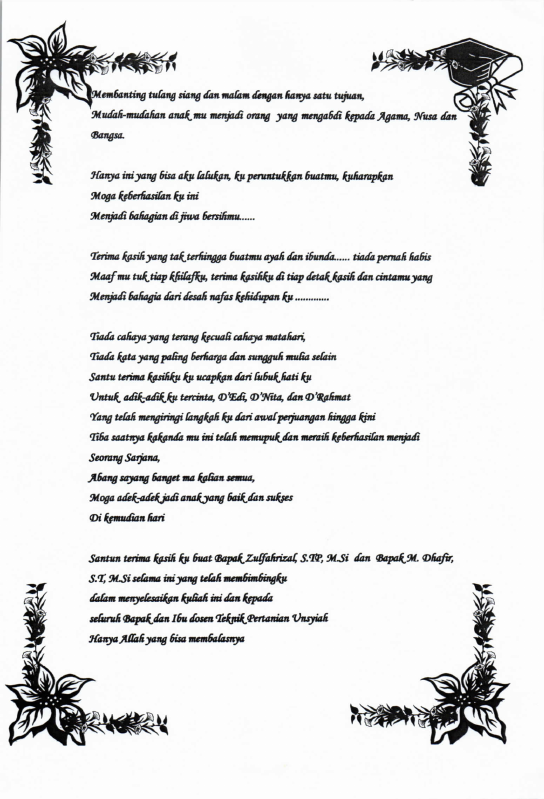 Membanting tulang siang dan malam dengan hanya satu tujuan,
Mudah-mudahan anak mu menjadi orang yang mengabdi kepada Agama, Nusa dan
Bangsa.
Hanya ini yang bisa aku lalukan, ku peruntukkan buatmu, kuharapkan
Moga keberhasilan ku ini
Menjadi bahagian di jiwa bersihmu......
Terima kasih yang tak terhingga buatmu ayah dan ibunda...... tiada pernah habis
Maaf mu tuk tiap khilafku, terima kasihku di tiap detak kasih dan cintamu yang
Menjadi bahagia dari desah nafas kehidupan ku .............
Tiada cahaya yang terang kecuali cahaya matahari,
Tiada kata yang paling berharga dan sungguh mulia selain
Santu terima kasihku ku ucapkan dari lubuk hati ku
Untuk adik-adik ku tercinta, D'Edi, D'Nita, dan D'Rahmat
Yang telah mengiringi langkah ku dari awal perjuangan hingga kini
Tiba saatnya kakanda mu ini telah memupuk dan meraih keberhasilan menjadi
Seorang Sarjana,
Abang sayang banget ma kalian semua,
Moga adek-adek jadi anak yang baik dan sukses
Di kemudian hari
Santun terima kasih ku buat Bapak Zulfahrizal, S.TP, M.Si dan Bapak M. Dhafir,
S.T, M.Si selama ini yang telah membimbingku
dalam menyelesaikan kuliah ini dan kepada
seluruh Bapak dan Ibu dosen Teknik Pertanian Unsyiah
Hanya Allah yang bisa membalasnya